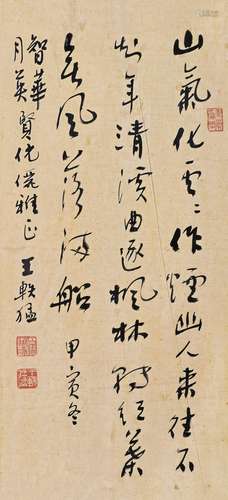 山氣化雲〻作煙幽人來往不
知年清溪曲逐楓林轉紅葉
無風落滿船 甲寅冬
智華
月英
賢伉儷雅正 王軼猛